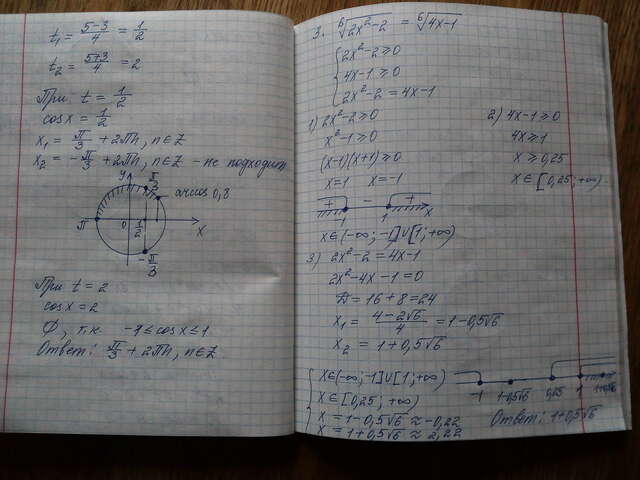 t₁ = (5-3)/4 = 1/2
t₂ = (5+3)/4 = 2
При t = 1/2
cosx = 1/2
x₁ = π/3 + 2πn, n∈Z
x₂ = -π/3 + 2πn, n∈Z - не подходит
y π/3
arccos 0,8
π 0 1/2 x
-π/3
При t = 2
cosx = 2
∅, т.к. -1≤cosx≤1
Ответ: π/3 + 2πn, n∈Z
3. ⁶√(2x²-2) = ⁶√(4x-1)
2x²-2≥0
4x-1≥0
2x²-2=4x-1
1) 2x²-2≥0
x²-1≥0
(x-1)(x+1)≥0
x=1 x=-1
+ - +
-1 1 x
x∈(-∞;-1]∪[1;+∞)
2) 4x-1≥0
4x≥1
x≥0,25
x∈[0,25;+∞)
3) 2x²-2=4x-1
2x²-4x-1=0
D=16+8=24
x₁ = (4-2√6)/4 = 1-0,5√6
x₂ = 1+0,5√6
x∈(-∞;-1]∪[1;+∞)
x∈[0,25;+∞)
x=1-0,5√6≈-0,22
x=1+0,5√6≈2,22
-1 1-0,5√6 0,25 1 1+0,5√6
Ответ: 1+0,5√6